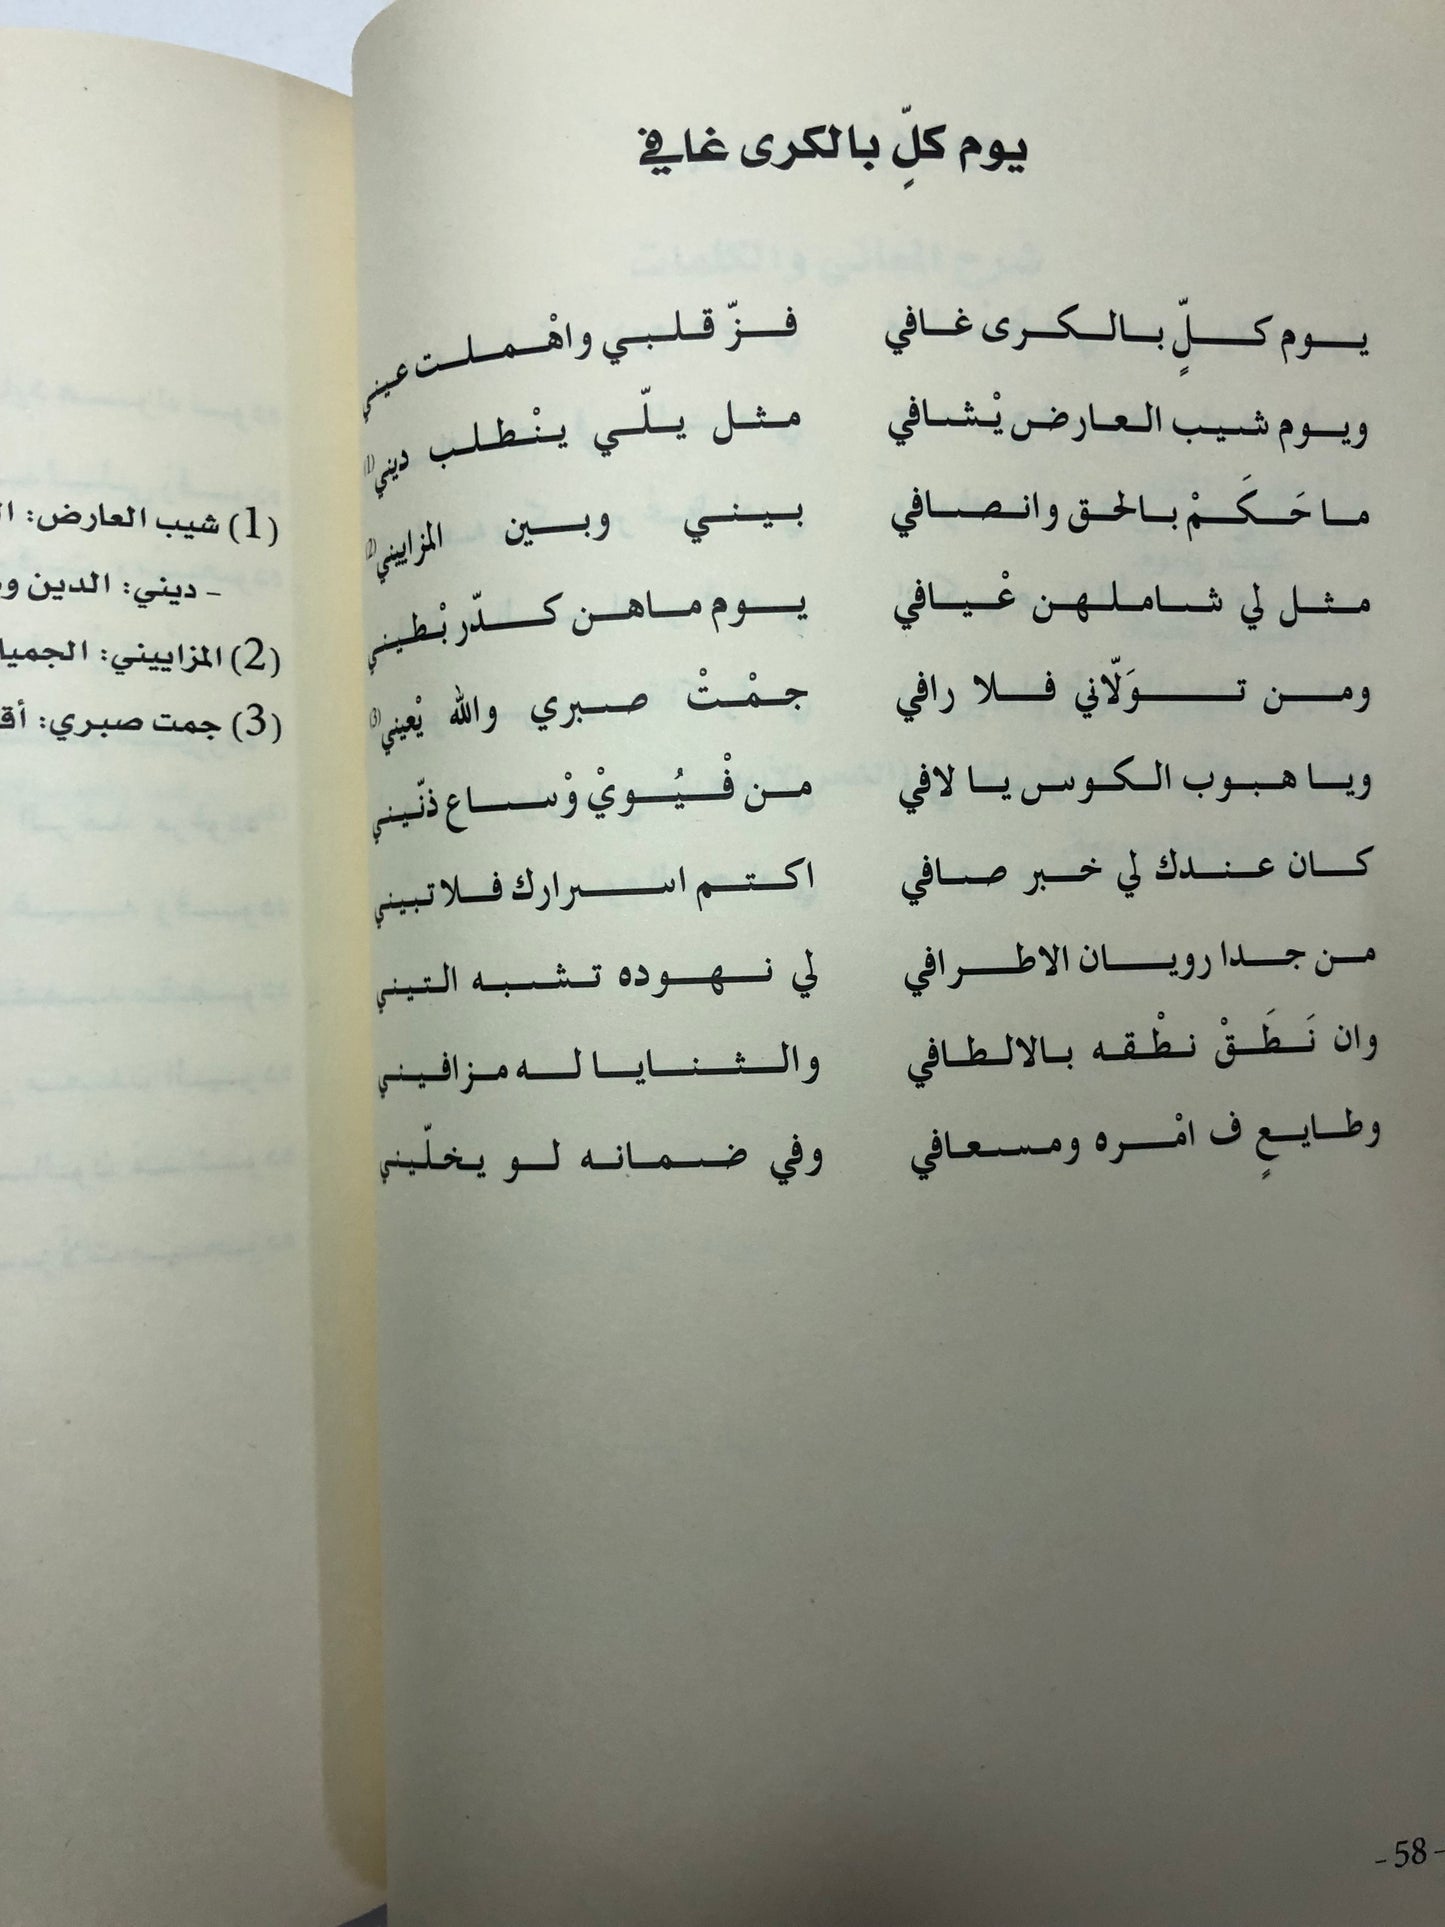 يوم كلٍّ بالكرى غافي
يوم كلٍّ بالكرى غافي فزّ قلبي واهْملت عيني
ويوم شيب العارض يْشافي مثل يلّي ينْطلب ديني (1)
ما حَكَمْ بالحق وانصافي بيني وبين المزاييني (2)
مثل لي شاملهن عْيافي يوم ماهن كدّر بْطيني
ومن تولاّني فلا رافي جمْتْ صبري والله يْعيني (3)
ويا هبوب الكوس يا لافي من فْيُويْ وْساع ذنّيني
كان عندك لي خبر صافي اكتم اسرارك فلا تبيني
من جدا رويان الاطرافي لي نهوده تشبه التيني
وان نَطَقْ نطْقه بالالطافي والثنايا له مزافيني
وطايعٍ ف امْره ومسعافي وفي ضمانه لو يخلّيني
-58-
(1) شيب العارض:
- ديني: الدين
(2) المزاييني:
(3) جمت صبري: